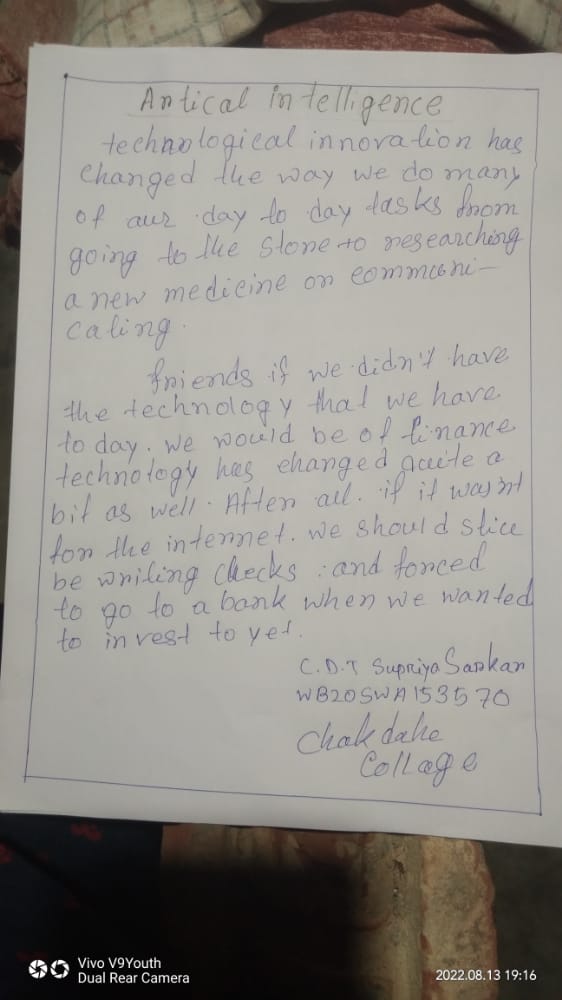 Antical intelligence
technological innovation has
changed the way we do many
of aur day to day tasks from
going to the Store to researching
a new medicine or communi-
cating.
friends if we didn't have
the technology that we have
to day. we would be of finance
technology has changed quite a
bit as well. After all. if it wasn't
for the internet. we should stice
be writing checks. and forced
to go to a bank when we wanted
to invest to yet.
C.D.T Supriya Sarkar
WB20SWA153570
Chakdahe
Collage
Vivo V9Youth
Dual Rear Camera
2022.08.13 19:16